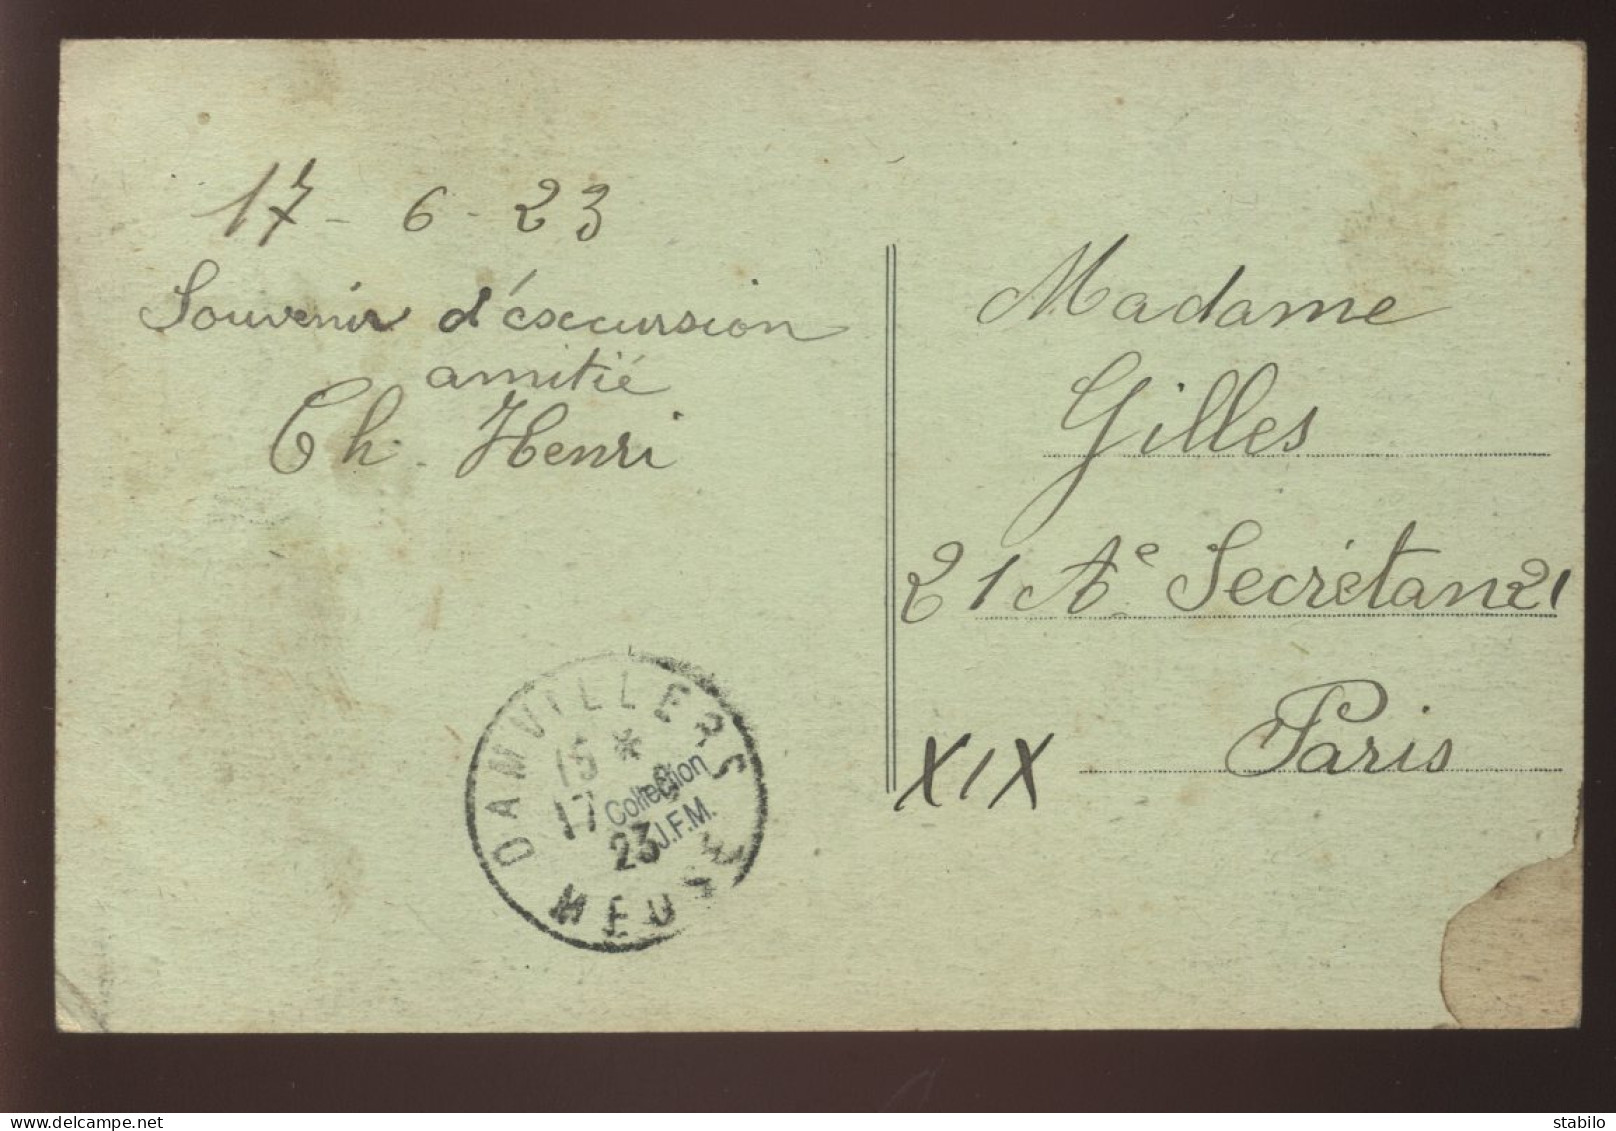 17 - 6 - 23
Souvenir d'éxcursion
amitié
Ch. Henri
Madame
Gilles
21 Ae Secrétan 21
Paris
XIX
DAMVILLERS
15 *
17 - 6
23
MEUSE
Collection
J.F.M.
delcampe.net
stabilo